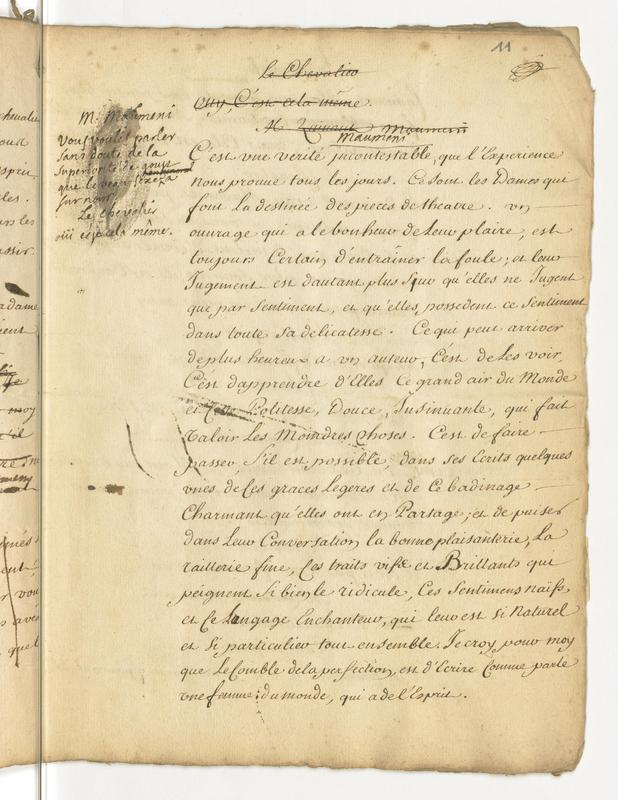 11
Le Chevalier
Ouy, C'est cela même.
M. Maumeni
Maumeni
M. Maumeni
Vous voulés parler
sans doute de la
superiorité de gout
que le beau sexe a
sur nous
Le chevalier
oui c'est cela même.
C'est vne verité jncontestable, que l'Experience
nous prouue tous les jours. Ce sont les Dames qui
font la destinée des pieces de theatre. vn
ouurage qui a le bonheur de Leur plaire, est
toujours Certain d'entraîner la foule; et leur
Jugement est dautant plus sur qu'elles ne Jugent
que par sentiment, et qu'elles possedent ce sentiment
dans toute sa delicatesse. Ce qui peut arriver
de plus heureux a vn auteur, C'est de Les voir,
C'est d'apprendre d'Elles Ce grand air du Monde
et Cette Politesse, Douce, Insinuante, qui fait
Valoir Les Moindres Choses. C'est de faire
passer, s'il est possible, dans ses Ecrits quelques
vnes de Ces graces Legeres et de Ce badinage
Charmant qu'elles ont en Partage; et de puiser
dans Leur Conversation la bonne plaisanterie, La
raillerie fine, Ces traits vifs et Brillants qui
peignent si bien le ridicule, Ces Sentimens naïfs,
et Ce Langage Enchanteur, qui leur est si Naturel
et si particulier tout ensemble. Je croy pour moy
que Le Comble de la perfection, est d'Ecrire Comme parle
vne femme du monde, qui a de l'Esprit.